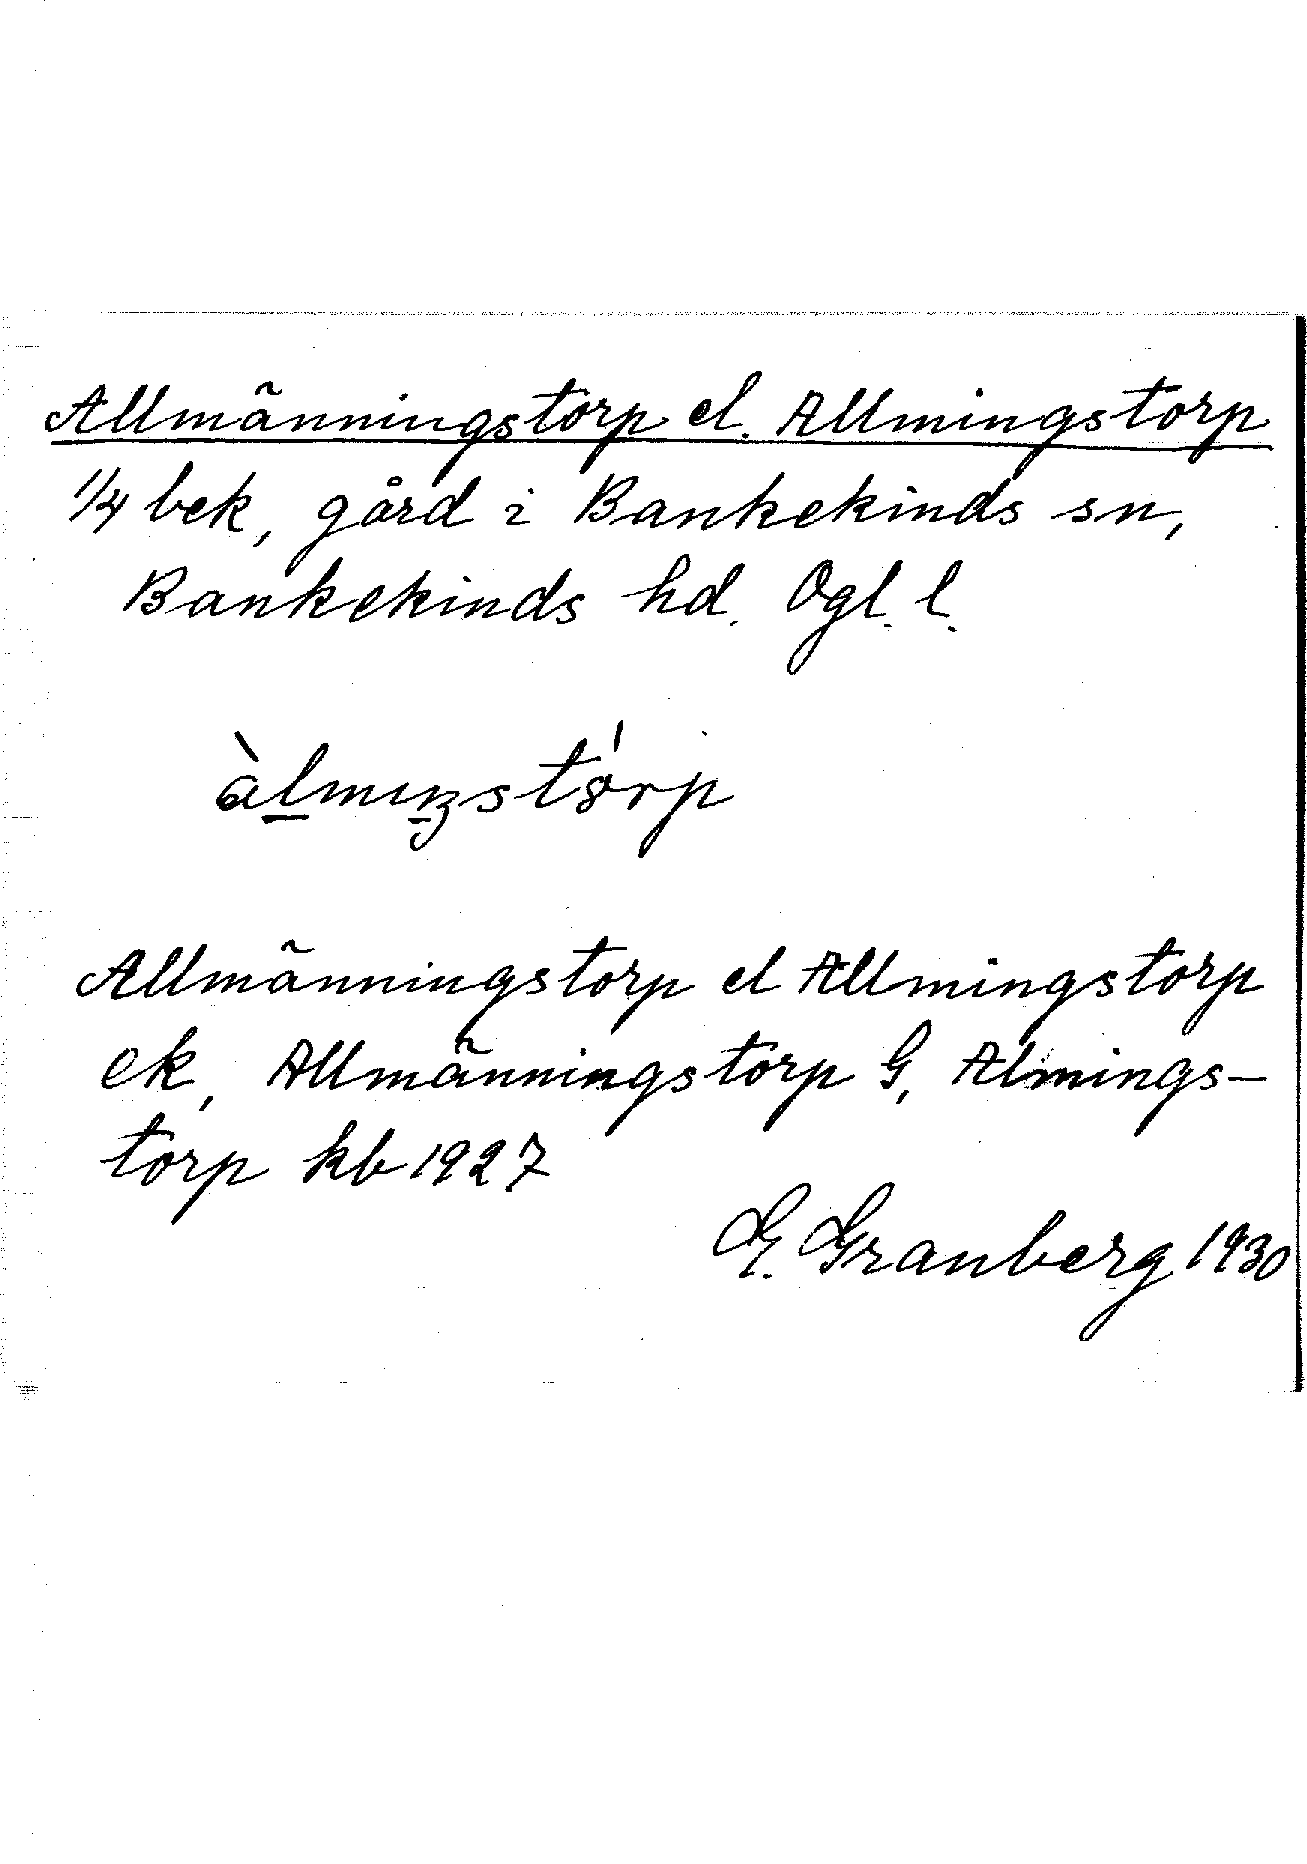 Allmänningstorp el. Allmingstorp
1/4 bek, gård i Bankekinds sn,
Bankekinds hd. Ögl. l.
àlmıŋstórp
Allmänningstorp el Allmingstorp
ek, Allmänningstorp G, Almings-
torp kb 1927
G. Granberg 1930